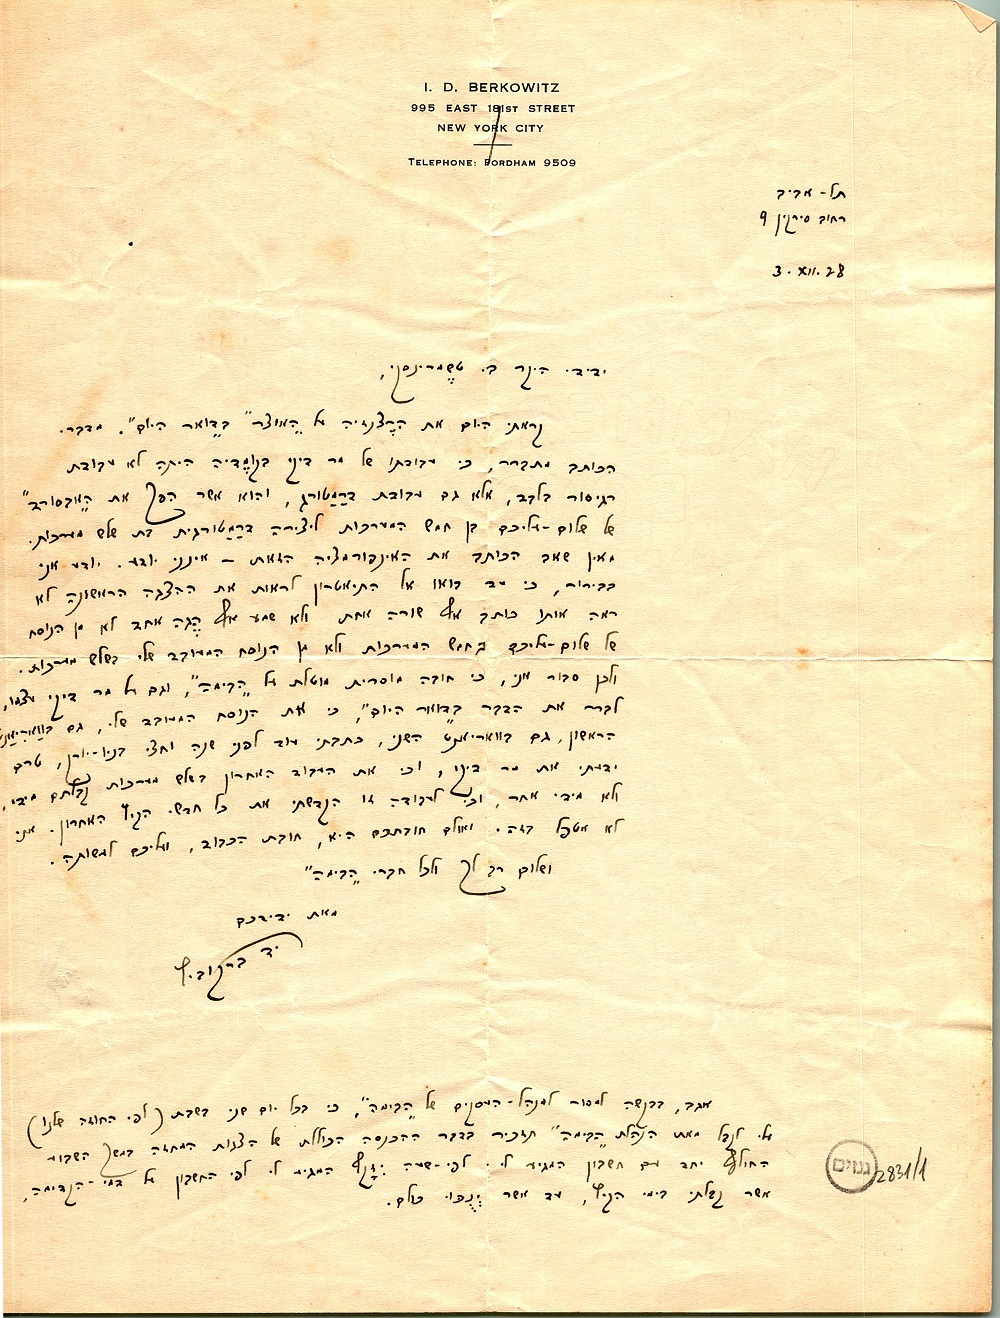 I. D. BERKOWITZ
995 EAST 181ST STREET
NEW YORK CITY
TELEPHONE: FORDHAM 9509
תל-אביב
רחוב סירקין 9
3.XII.28
ידידי היקר ב. טשֶמרינסקי,
קראתי היום את הרֶצנזיה על „האוצר" ב„דואר היום". מדברי
הכותב מתברר, כי עבודתו של מר דיקי בקומֶדיה היתה לא עבודת
רגיסור בלבד, אלא גם עבודת דרַמַטורג, והוא אשר הפך את ה„אבסורד"
של שלום-עליכם בן חמש המערכות ליצירה דרַמַטורגית בת שלש מערכות.
מאין שאב הכותב את האינפורמציה הזאת – אינני יודע. יודע אני
בבירור, כי עד בואו אל התיאטרון לראות את ההצגה הראשונה לא
ראה אותו כותב אף שורה אחת ולא שמע אף הֶגה אחד לא מן הנוסח
של שלום-עליכם בחמש המערכות ולא מן הנוסח המעובד שלי בשלש מערכות.
ולכן סבור אני, כי חובה מוסרית מוטלת על „הבימה", וגם על מר דיקי עצמו,
לברר את הדבר ב„דואר היום", כי את הנוסח המעובד שלי, גם בוַואריאַנט
הראשון, גם בוואריאנט השני, כתבתי עוד לפני שנה וחצי בניו-יורק, טרם
ידעתי את מר דיקי, וכי את העבוד האחרון בשלש מערכות קבלתם מידי,
ולא מידי אחר, וכי לעבודה זו הקדשתי את כל חדשי הקיץ האחרון. אני
לא אטפל בזה. ואולם חובתכם היא, חובת הכבוד, ועליכם לעשותה.
ושלום רב לך ולכל חברי „הבימה"
מאת ידידכם
יד ברקוביץ
אגב, בבקשה למסור למנהל-העסקים של „הבימה", כי בכל יום שני בשבת (לפי החוזה שלנו)
עלי לקבל מאת הנהלת „הבימה" תזכיר בדבר ההכנסה הכוללת של הצגות המחזה במשך השבוע
החולף יחד עם חשבון המגיע לי. לפי-שעה יִזָקף המגיע לי לפי החשבון על דמי-הקדימה,
אשר קבלתי בימי הקיץ, עד אשר יְנֻכּו כולם.
גנזים
2831/1